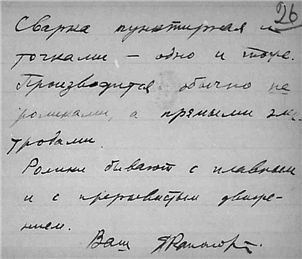 26
Сварка пунктирная и
точками – одно и то же.
Производится обычно не
роликами, а прямыми элек-
тродами.
Ролики бывают с плавным
и с прерывистым движе-
нием.
Ваш